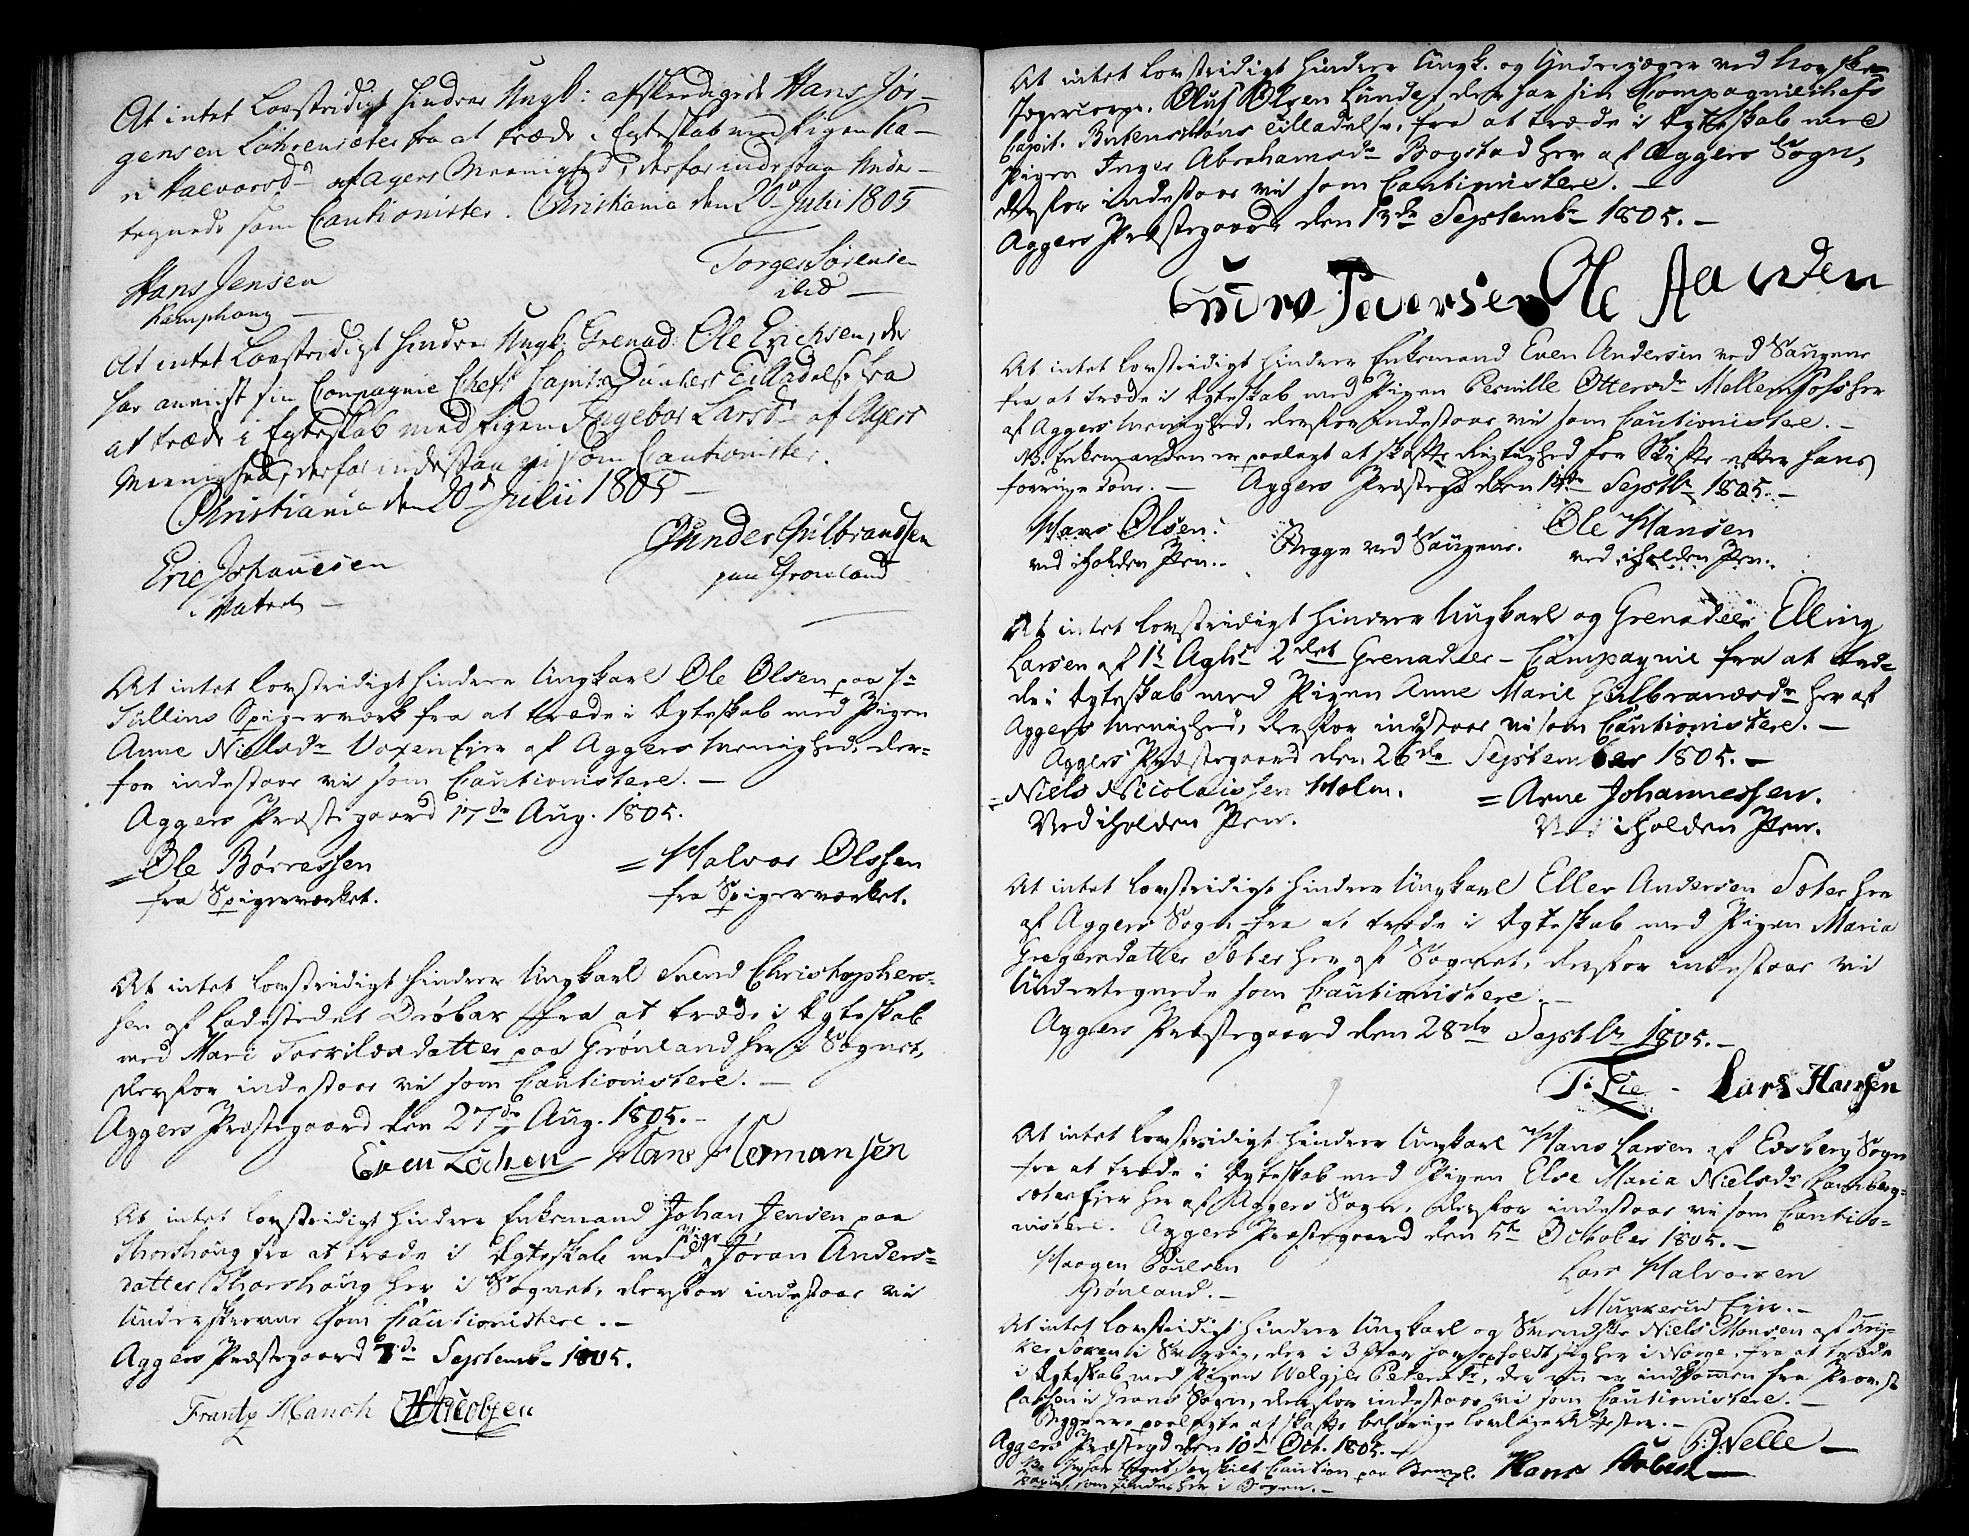 At intet Lovstridigt hindrer Ungk: afskedigede Hans Jør-
gensen fra at træde i Egteskab med Pigen Ka-
ri Halvorsd: af Agers Meenighed, derfor indestaa Unde-
tegnede som Cautionister. Christiania den 20de Julii 1805
Hans Jensen
Kamphoug
Torger Sørensen
ibid
At intet Lovstridigt hindrer Ungk: Grenad: Ole Erichsen, der
har anviist sin Compagnie Chef Capit: Tilladelse fra
at træde i Egteskab med Pigen Ingebor Larsd: af Agers
Meenighed, derfor indestaa vi som Cautionister.
Christiania den 20de Julii 1805
Eric Johannesen
Gunder Gulbrandsen
paa Grønland
At intet lovstridigt hindrer Ungkarl Ole Olsen paa Hr
Tullins Spigerværk fra at træde i Egteskab med Pigen
Anne Nielsdr Voxen Eier af Aggers Menighed, der-
for indestaar vi som Cautionistere. –
Aggers Præstegaard 17de Aug. 1805.
= Ole Børressen
fra Spigerværket.
= Halvor Olssen
fra Spigerværket.
At intet lovstridigt hindrer Ungkarl Svend Christophers-
sen af Ladestedet Drøbak fra at træde i Egteskab
med Mari Torkildsdatter paa Grønland her i Sognet,
derfor indestaar vi som Cautionistere. –
Aggers Præstegaard den 27de Aug. 1805. –
Even Løchen Hans Hermansen
At intet lovstridigt hindrer Enkemand Johan Jensen paa
Thorshoug fra at træde i Egteskab med Pige Jøran Anders-
datter Thorshoug her i Sognet, derfor indestaar vi
Underskrevne som Cautionistere. –
Aggers Præstegaard 7de Septemb. 1805.
Frantz Hanch HJacobsen
At intet lovstridigt hindrer Ungk. og Underjæger ved Norske
Jægercorps, Oluf Olsen Lunde, der har sin Compagniechefs
Capit. Tilladelse, fra at træde i Egteskab med
Pigen Inger Abrahamsdr Bogstad her af Aggers Sogn,
derfor indestaar vi som Cautionistere. –
Aggers Præstegaard den 13de Septembr 1805. –
Peversen Ole
At intet lovstridigt hindrer Enkemand Even Andersen ved Saugene
fra at træde i Egteskab med Pigen Pernille Ottersdr Mellemfoss her
af Aggers Menighed, derfor indestaar vi som Cautionistere. –
NB. Enkemanden er paalagt at skaffe Rigtighed for Skifte efter hans
forrige Kone. – Aggers Præstegd den 14de Septbr 1805. –
Hans Olsen.
ved iholden Pen.
Begge ved Saugene.
Ole Hansen
ved iholden Pen.
At intet lovstridigt hindrer Ungkarl og Grenadeer Elling
Larsen af 1t Aghs 2det Grenadeer-Compagnie fra at træ-
de i Egteskab med Pigen Anne Marie Gulbrandsdr her af
Aggers Menighed, derfor indestaar vi som Cautionistere. –
Aggers Præstegaard den 26de September 1805. –
= Niels Nicolaissen Holm.
Ved iholden Pen.
= Arne Johannessen.
Ved iholden Pen.
At intet lovstridigt hindrer Ungkarl Eller Andersen Soter her
af Aggers Sogn fra at træde i Egteskab med Pigen Maria
Gregersdatter Soter her af Sognet, derfor indestaar vi
Undertegnede som Cautionistere. –
Aggers Præstegaard den 28de Septbr 1805. –
Lars Hansen
At intet lovstridigt hindrer Ungkarl Hans Larsen af Edsberg Sogn
fra at træde i Egteskab med Pigen Else Maria Nielsdr
her af Aggers Sogn, derfor indestaar vi som Cautio-
nistere. Aggers Præstegaard den 5te October 1805. –
Haagen Poulsen
Grønland. –
Lars Halvorsen
Munkerud Eier. –
At intet lovstridigt hindrer Ungkarl og Niels Monsen af
Soxen i Sverrig, der i 3 Aar har opholdt sig her i Norge, fra at træde
i Egteskab med Pigen Petersdr, der nu er indkommen fra
Sogn, derfor indestaar vi som Cautionistere. –
Begge ere paalagte at skaffe behørige lovlige Attester. –
Aggers Præstegd den 10de Oct. 1805. –
P. Nelle –
Hans
Papiir, som findes her i Bogen. –